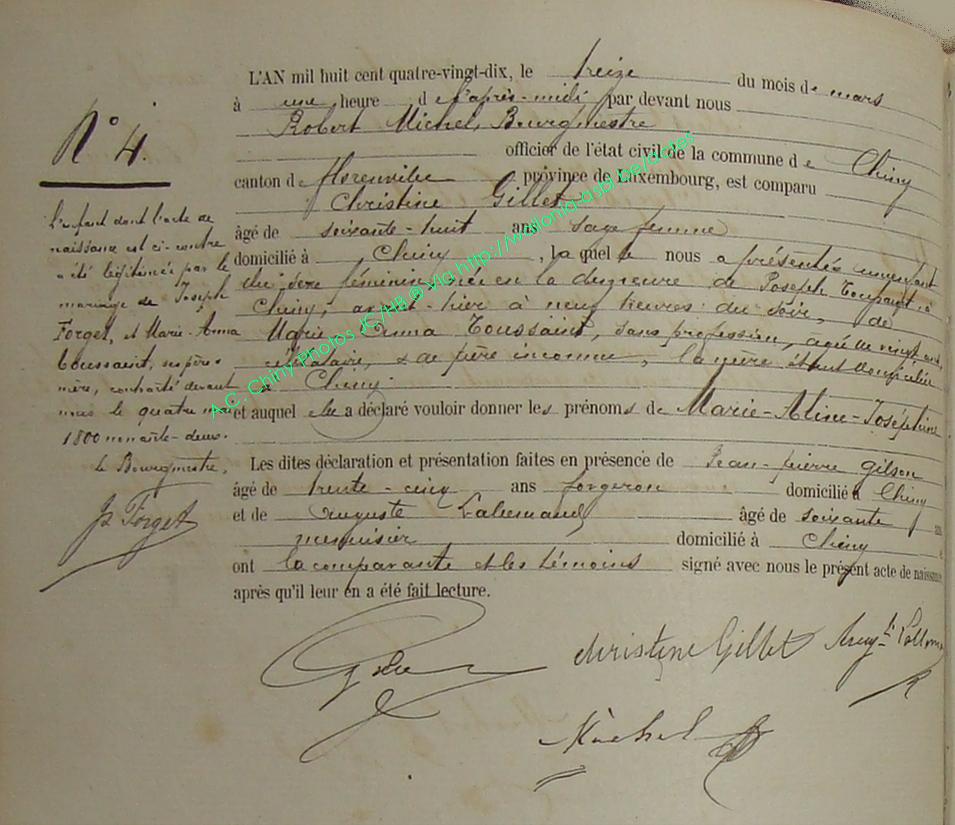 N° 4.
L'enfant dont l'acte de
naissance est ci-contre
a été légitimée par le
mariage de Joseph
Forget, et Marie-Anna
Toussaint, ses père &
mère, contracté devant
nous le quatre mai
1800 nonante-deux.
Le Bourgmestre,
Js Forget
L'AN mil huit cent quatre-vingt-dix, le treize du mois de mars
à une heure de l'après-midi par devant nous
Robert Michel, Bourgmestre
officier de l'état civil de la commune de Chiny
canton de florenville province de Luxembourg, est comparu
Christine Gillet
âgé de soixante-huit ans sage femme
domicilié à Chiny, laquelle nous a présenté un enfant
du sexe féminin née en la demeure de Joseph Toussaint à
Chiny, avant-hier à neuf heures du soir, de
Marie Anna Toussaint, sans profession, agée de vingt ans,
célibataire, & de père inconnu, la mère étant domiciliée
à Chiny.
et auquel elle a déclaré vouloir donner les prénoms de Marie-Aline-Joséphine
Les dites déclaration et présentation faites en présence de Jean-pierre Gilson
âgé de trente-cinq ans forgeron domicilié à Chiny
et de Auguste Lallemand âgé de soixante ans
menuisier domicilié à Chiny
ont la comparante et les témoins signé avec nous le présent acte de naissance
après qu'il leur en a été fait lecture.
christine Gillet
Michel
A.C. Chiny Photos JC/HB @ via http://wallonia-asbl.be/dotes